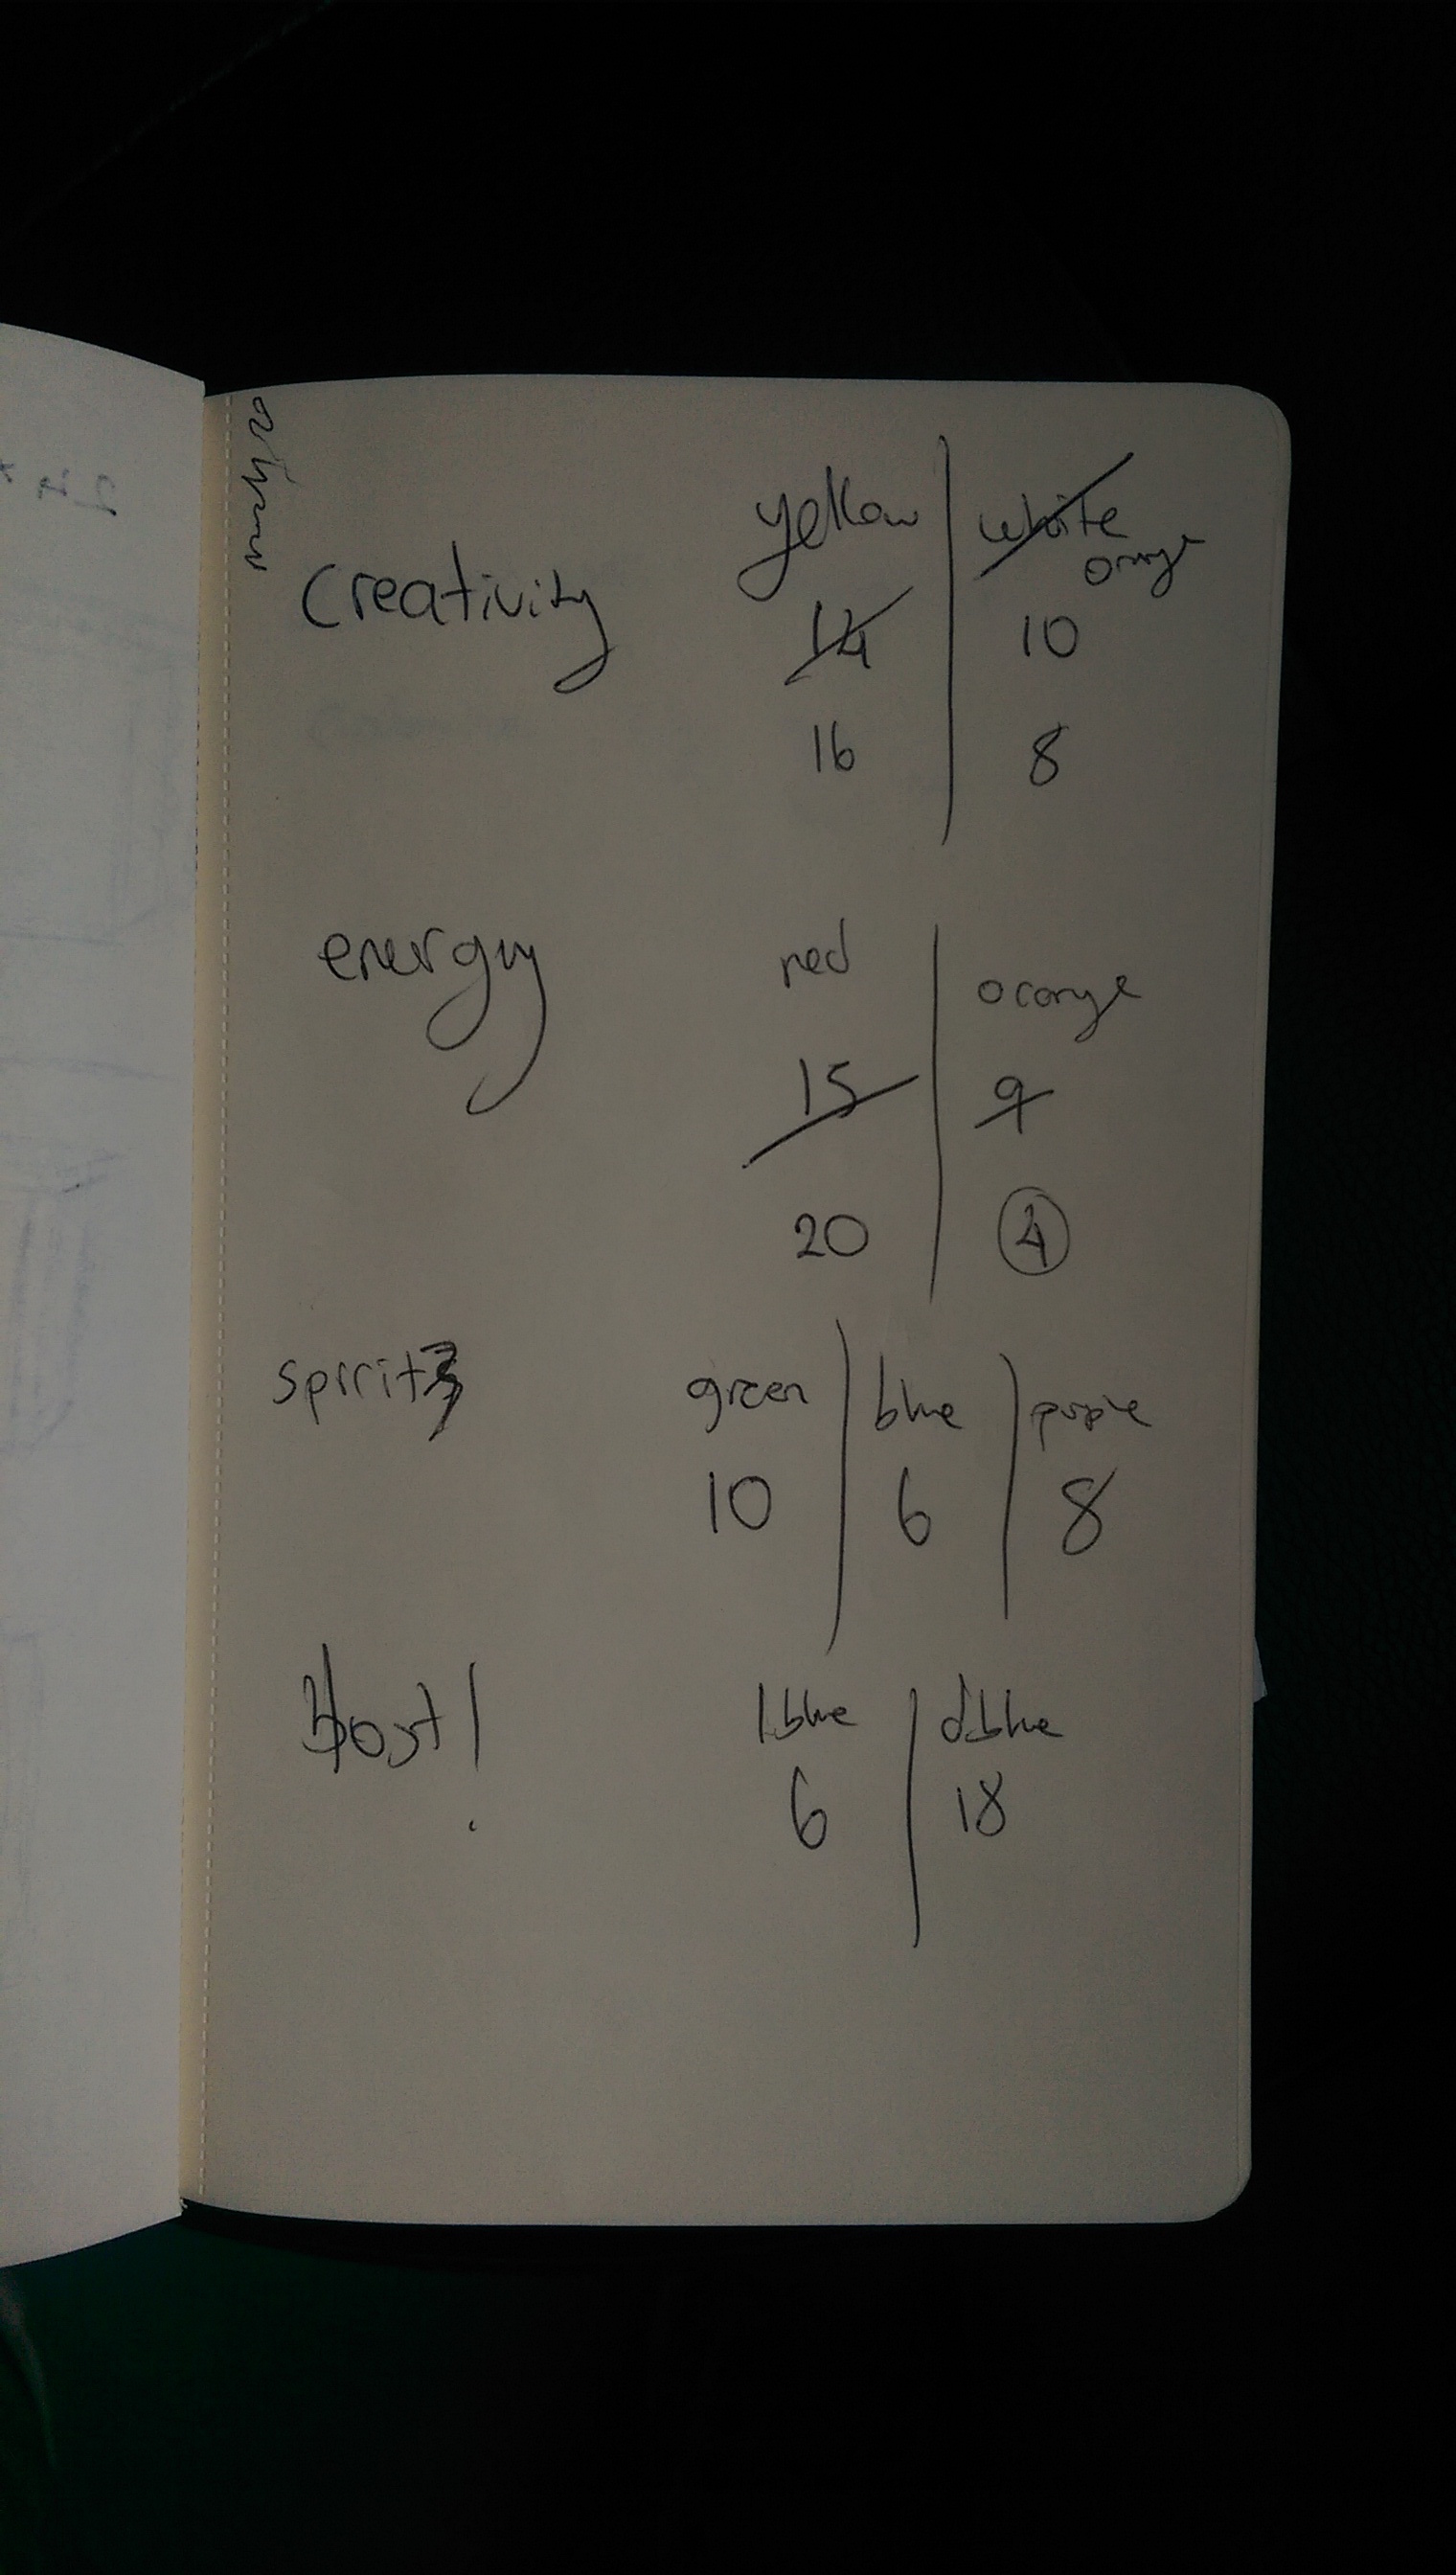 creativity yellow | white orange
14 10
16 8
energy red | orange
15 9
20 4
spirit green | blue | purple
10 6 8
boost! l.blue | d.blue
6 18